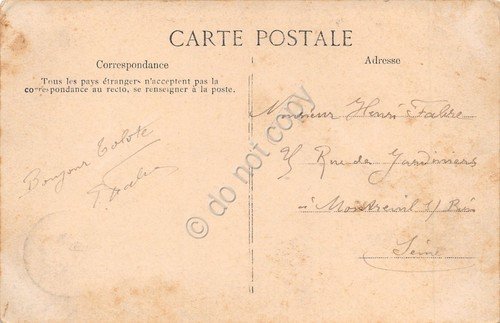 CARTE POSTALE
Correspondance
Tous les pays étrangers n'acceptent pas la
correspondance au recto, se renseigner à la poste.
Bonjour
Adresse
Monsieur Henri Fabre
Rue des Jardiniers
à Montreuil s/ Bois
Seine
© do not copy